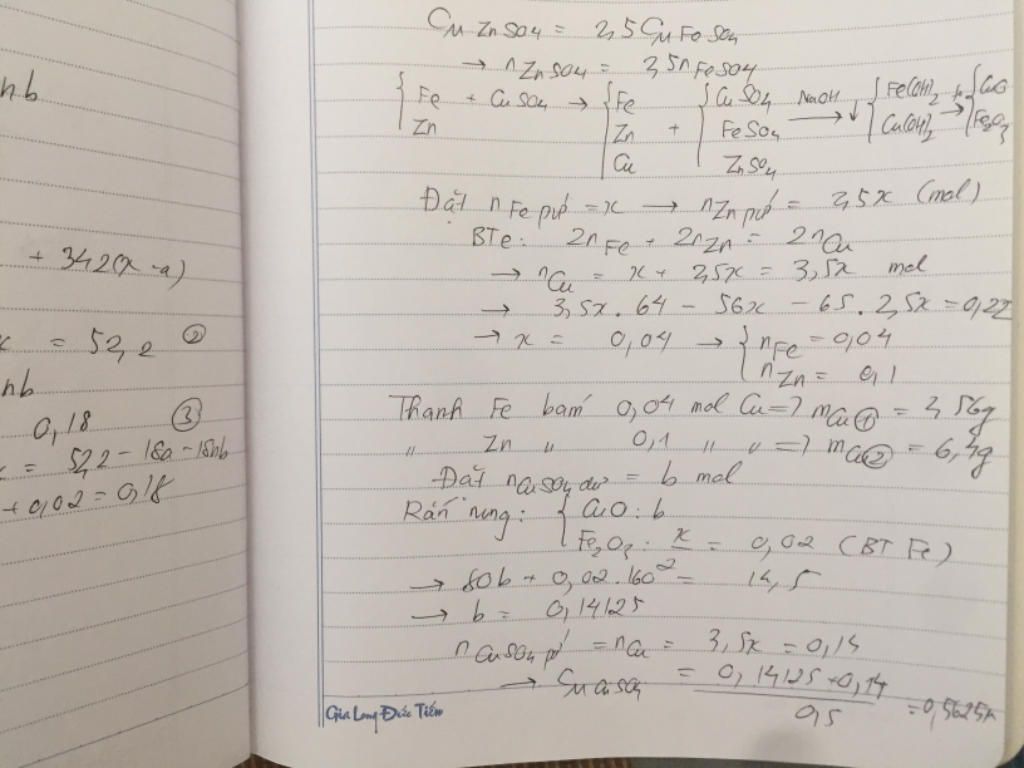 nb
+ 342(x - a)
= 52,2 ②
nb
0,18 ③
= 52,2 - 18a - 18nb
+ 0,02 = 0,18
CM ZnSO4 = 2,5 CM FeSO4
→ nZnSO4 = 2,5nFeSO4
{ Fe + CuSO4 → { Fe { CuSO4 NaOH ↓ { Fe(OH)2 t° { CuO
Zn Zn + FeSO4 → Cu(OH)2 → Fe2O3
Cu ZnSO4
Đặt nFe pứ = x → nZn pứ = 2,5x (mol)
BTe: 2nFe + 2nZn = 2nCu
→ nCu = x + 2,5x = 3,5x mol
→ 3,5x . 64 - 56x - 65 . 2,5x = 0,22
→ x = 0,04 → { nFe = 0,04
nZn = 0,1
Thanh Fe bám 0,04 mol Cu => mCu① = 2,56g
" Zn " 0,1 " " => mCu② = 6,4g
Đặt nCuSO4 dư = b mol
Rắn nung: { CuO : b
Fe2O3 : x/2 = 0,02 (BT Fe)
→ 80b + 0,02.160 = 14,5
→ b = 0,14125
nCuSO4 pứ = nCu = 3,5x = 0,14
→ CM CuSO4 = 0,14125 + 0,14 / 0,5 = 0,5625M
Gia Long Đức Tiến